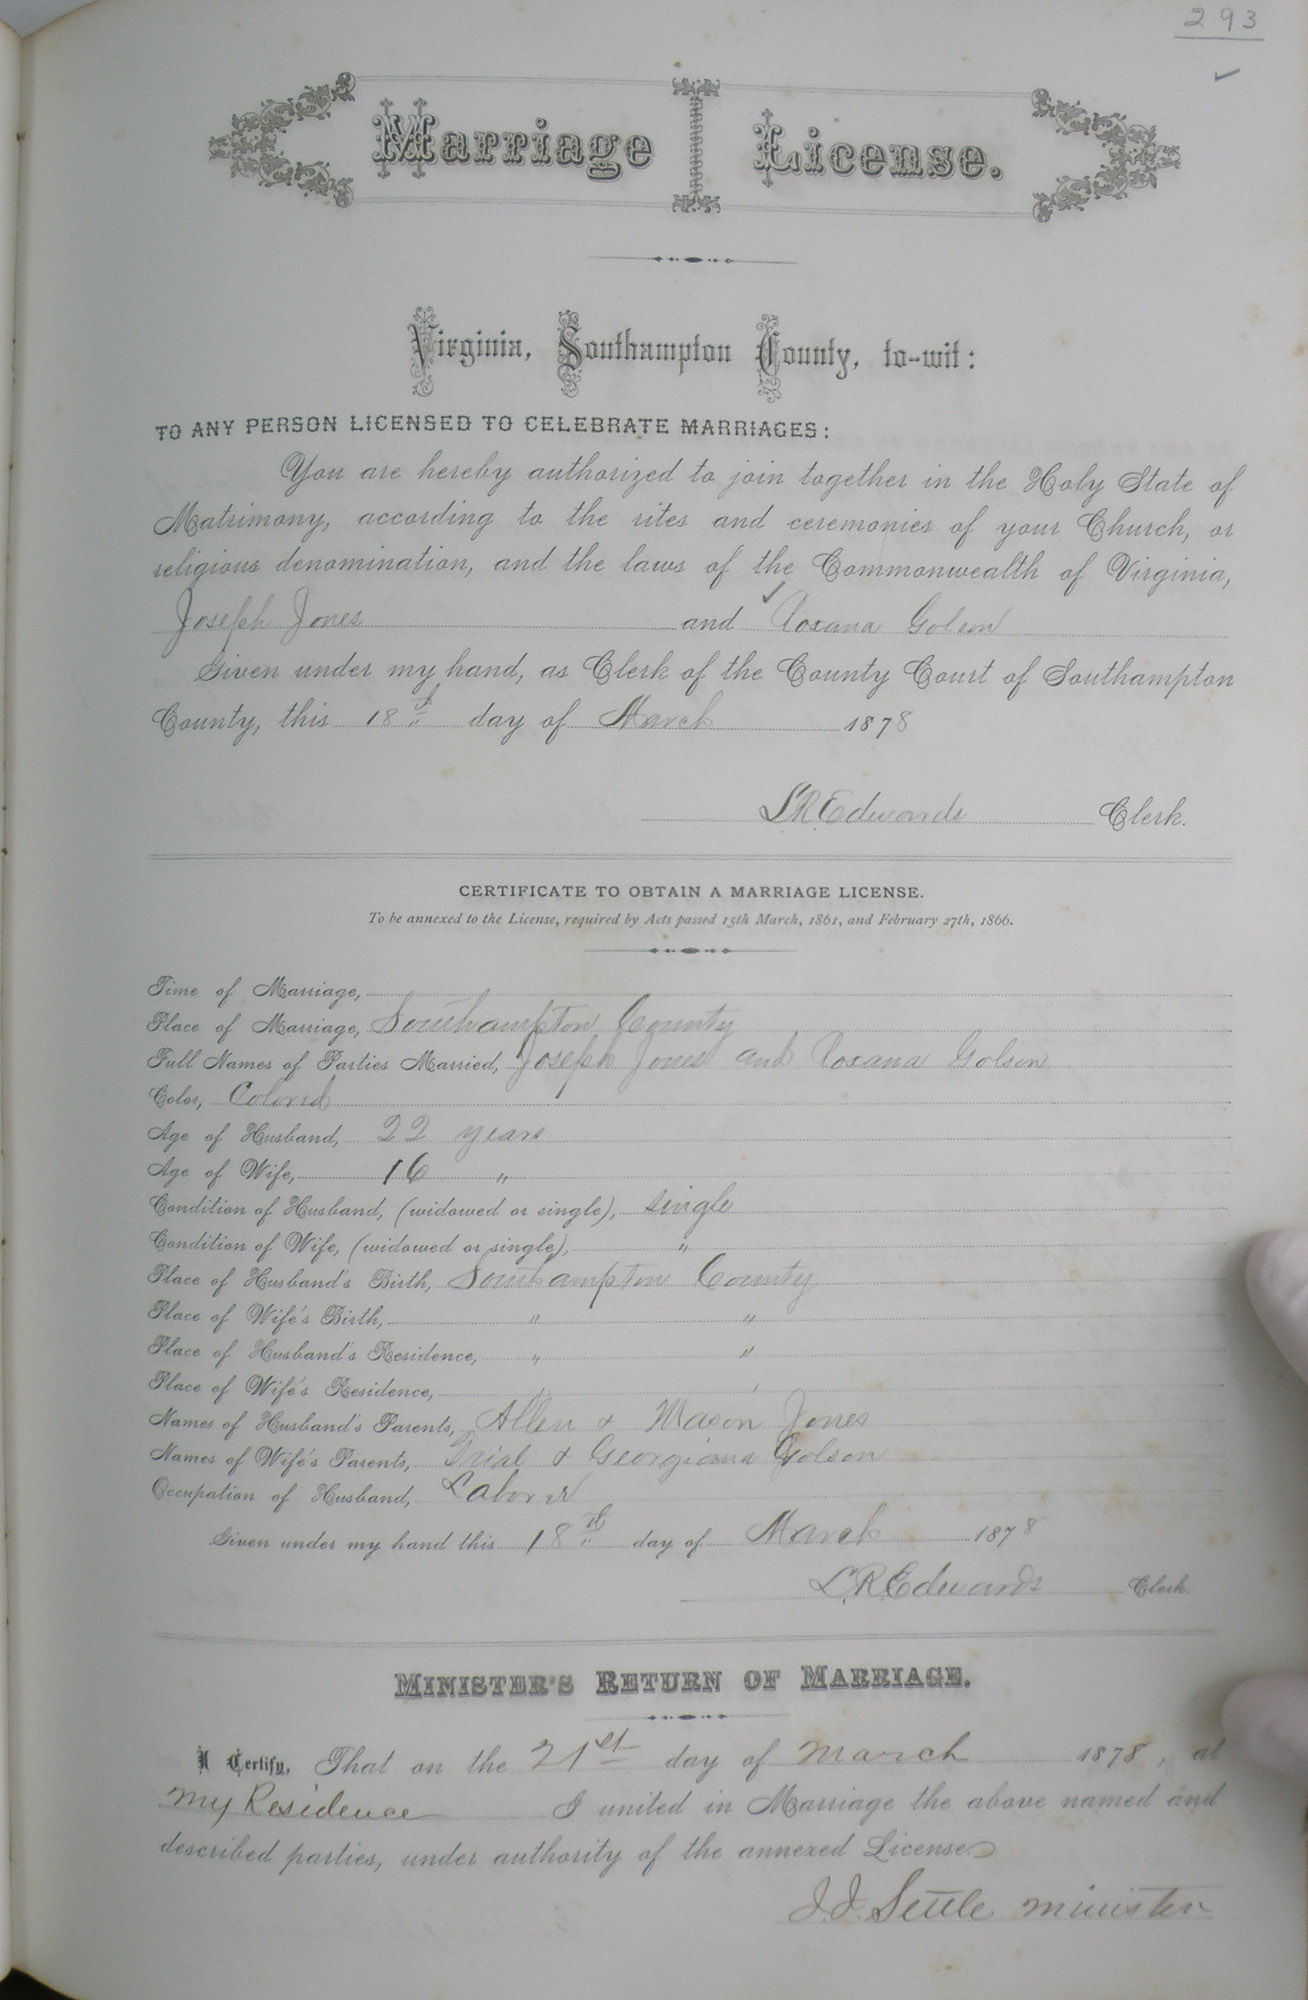 293
Marriage License.
Virginia, Southampton County, to-wit:
TO ANY PERSON LICENSED TO CELEBRATE MARRIAGES:
You are hereby authorized to join together in the Holy State of
Matrimony, according to the rites and ceremonies of your Church, or
religious denomination, and the laws of the Commonwealth of Virginia,
Joseph Jones and Roxana Golson
Given under my hand, as Clerk of the County Court of Southampton
County, this 18th day of March 1878
L R Edwards Clerk.
CERTIFICATE TO OBTAIN A MARRIAGE LICENSE.
To be annexed to the License, required by Acts passed 15th March, 1861, and February 27th, 1866.
Time of Marriage,
Place of Marriage, Southampton County
Full Names of Parties Married, Joseph Jones and Roxana Golson
Color, Colored
Age of Husband, 22 years
Age of Wife, 16 "
Condition of Husband, (widowed or single), single
Condition of Wife, (widowed or single), "
Place of Husband's Birth, Southampton County
Place of Wife's Birth, " "
Place of Husband's Residence, " "
Place of Wife's Residence, " "
Names of Husband's Parents, Allen & Mason Jones
Names of Wife's Parents, & Georgiana Golson
Occupation of Husband, Laborer
Given under my hand this 18th day of March 1878
L. R. Edwards Clerk.
MINISTER'S RETURN OF MARRIAGE.
I Certify, That on the 21st day of March 1878, at
My Residence I united in Marriage the above named and
described parties, under authority of the annexed License
J. J. Settle minister